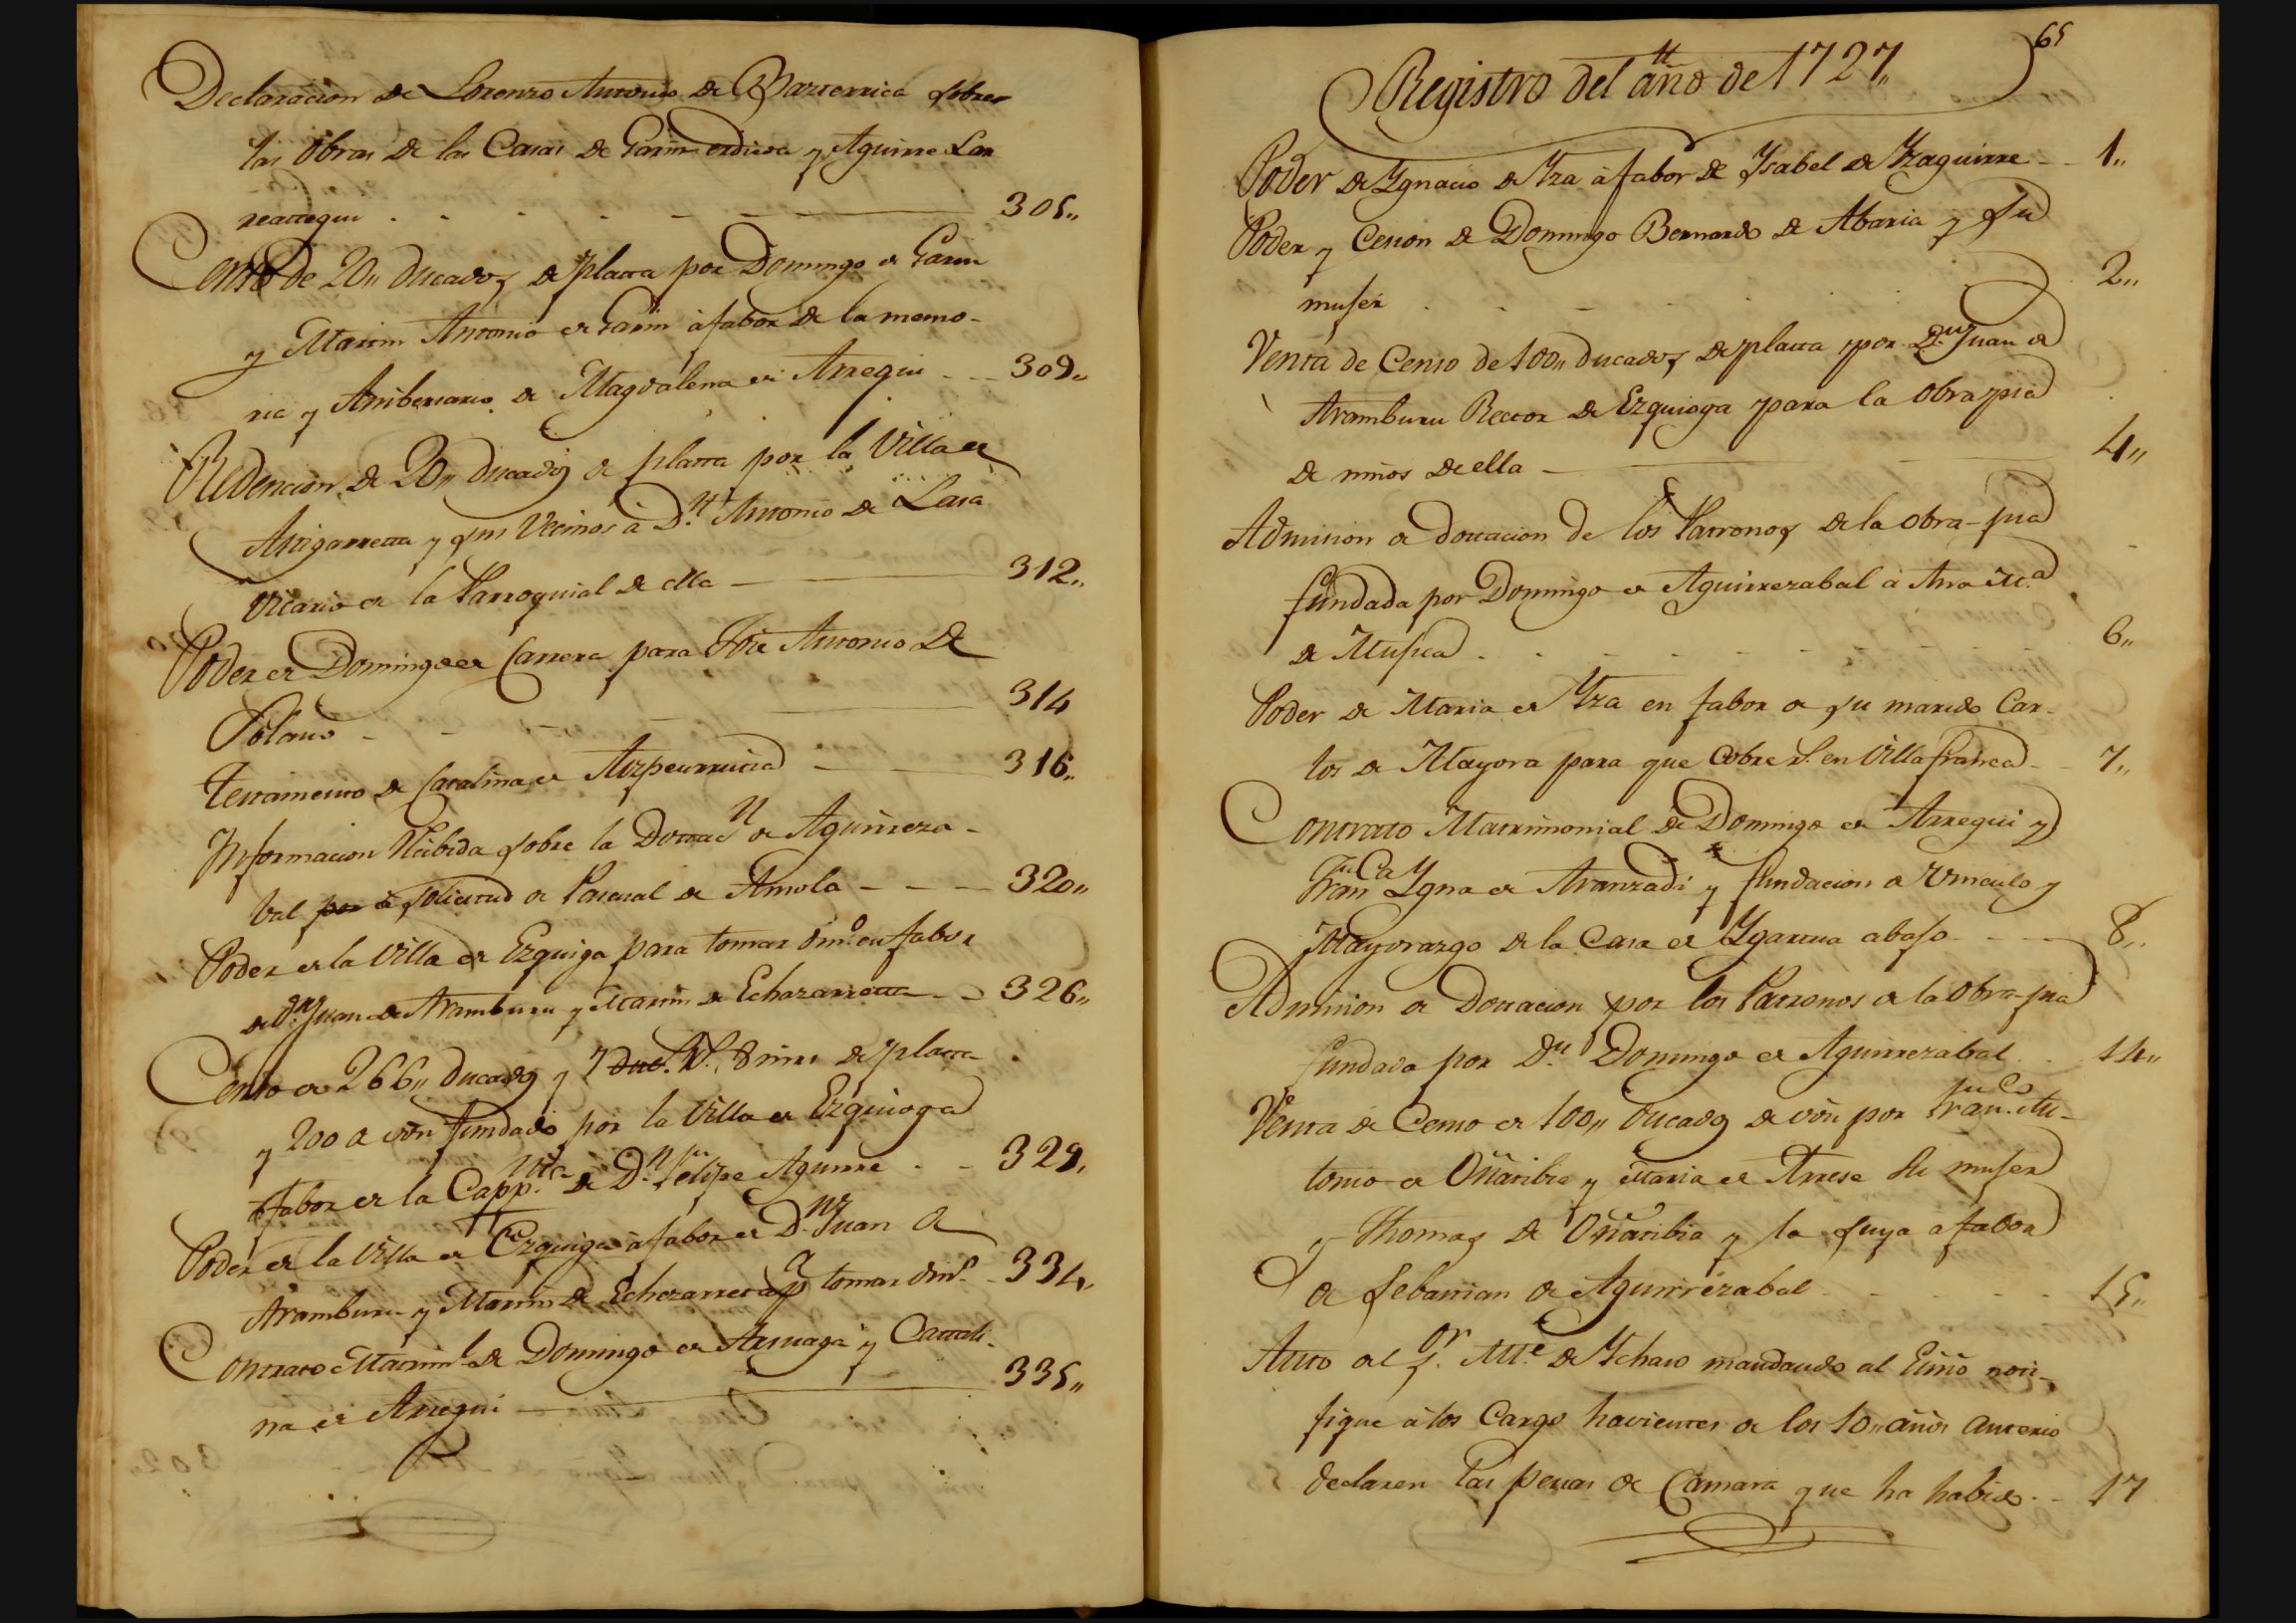 Declaracion de Lorenzo Antonio de Barrenica sobre
las obras de las Casas de Garin y Aguirre Lar
reategui 305,,
Censo de 20,, ducados de platta por Domingo de Garin
y Martin Antonio de Garin à fabor de la memo-
ria y Anibersario de Magdalena de Arregui 309,,
Redencion de 20,, ducados de platta por la Villa de
Astigarretta y sus Vecinos à D.n Antonio de Lasa
Vicario de la Parroquial de ella 312,,
Poder de Domingo de Carrera para Jose Antonio de
Polanco 314
Testamento de Catalina de Aizpeurrutia 316,,
Informacion recibida sobre la Dottac.n de Aguirreza-
bal por à solicitud de Pascual de Amola 320,,
Poder de la Villa de Ezquiga para tomar din.o en fabor
de D.n Juan de Aramburu y Martin de Echazarretta 326,,
Censo de 266,, ducados y 7 duc. R.s 8 mrs de platta
y 200 de von fundado por la Villa de Ezquioga
à fabor de la Capp.nia de D.n Felipe Aguirre 329,
Poder de la Villa de Ezquiga à fabor de D.n Juan de
Aramburu y Martin de Echezarreta pa tomar din.o 334,
Contrato Matrim.l de Domingo de Arruaga y Cattali-
na de Arregui 335,,
65
Registro del año de 1727,,
Poder de Ygnacio de Yza à fabor de Ysabel de Yzaguirre 1,,
Poder y Cesion de Domingo Bernardo de Abaria y su
muser 2,,
Venta de Censo de 100,, ducados de platta por D.n Juan de
Aramburu Rector de Ezquioga para la obra pia
de niños de ella 4,,
Admision de dottacion de los Patronos de la obra-pia
fundada por Domingo de Aguirrezabal à Ana M.a
de Musica 6,,
Poder de Maria de Yza en fabor de su marido Car-
los de Mayora para que cobre R.s en Villafranca 7,,
Contrato Matrimonial de Domingo de Arregui y
Fran.ca Ygna de Aranzadi y fundacion de Vinculo y
Mayorazgo de la Casa de Ygartua abaso 8,,
Admision de Dottacion por los Patronos de la obra-pia
fundada por D.n Domingo de Aguirrezabal 14,,
Venta de Censo de 100,, Ducados de von por Fran.co An-
tonio de Oñatibia y Maria de Arrese su muser
y Thomas de Oñatibia y la suya à fabor
de Sebastian de Aguirrezabal 15,,
Auto del S.or Alc.e de Ychaso mandando al Essno noti-
fique à los Cargo havientes de los 10,, años anterio
declaren las penas de Camara que ha habido 17